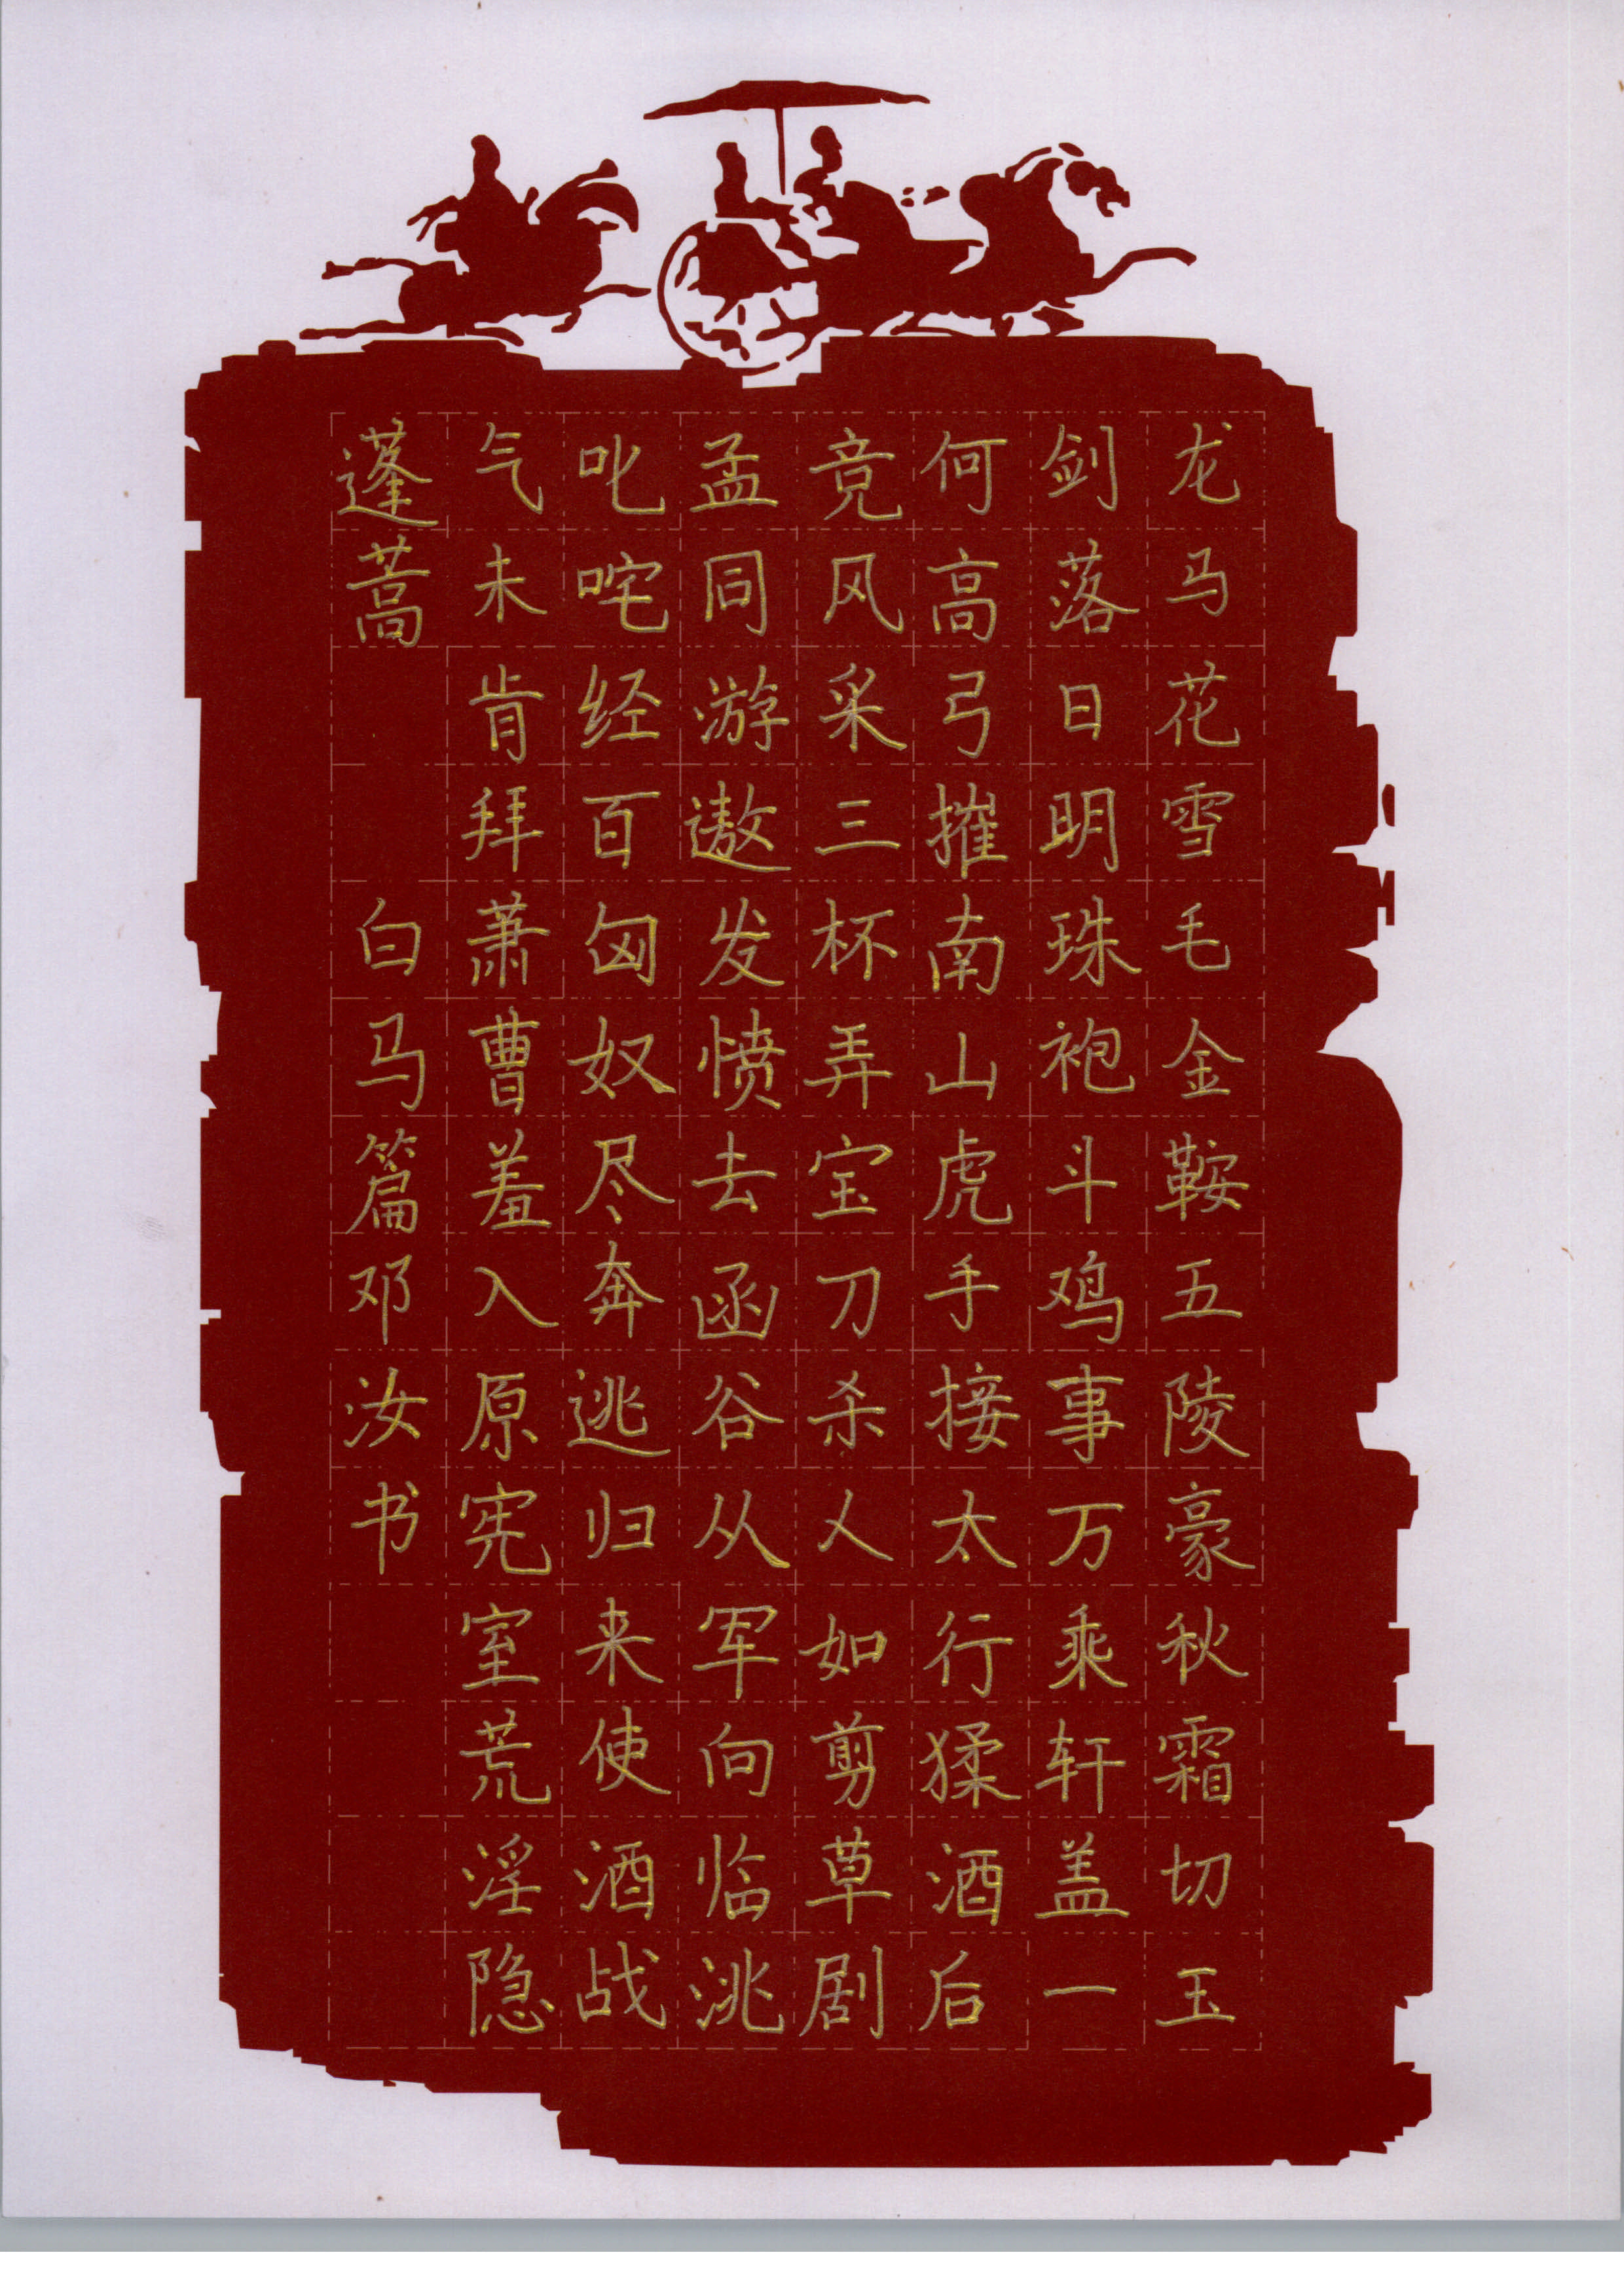 龙马花雪毛金鞍五陵豪秋霜切玉
剑落日明珠袍斗鸡事万乘轩盖一
何高弓摧南山虎手接太行猱酒后
竞风采三杯弄宝刀杀人如剪草剧
孟同游遨发愤去函谷从军向临洮
叱咤经百匈奴尽奔逃归来使酒战
气未肯拜萧曹羞入原宪室荒淫隐
蓬蒿 白马篇邓汝书